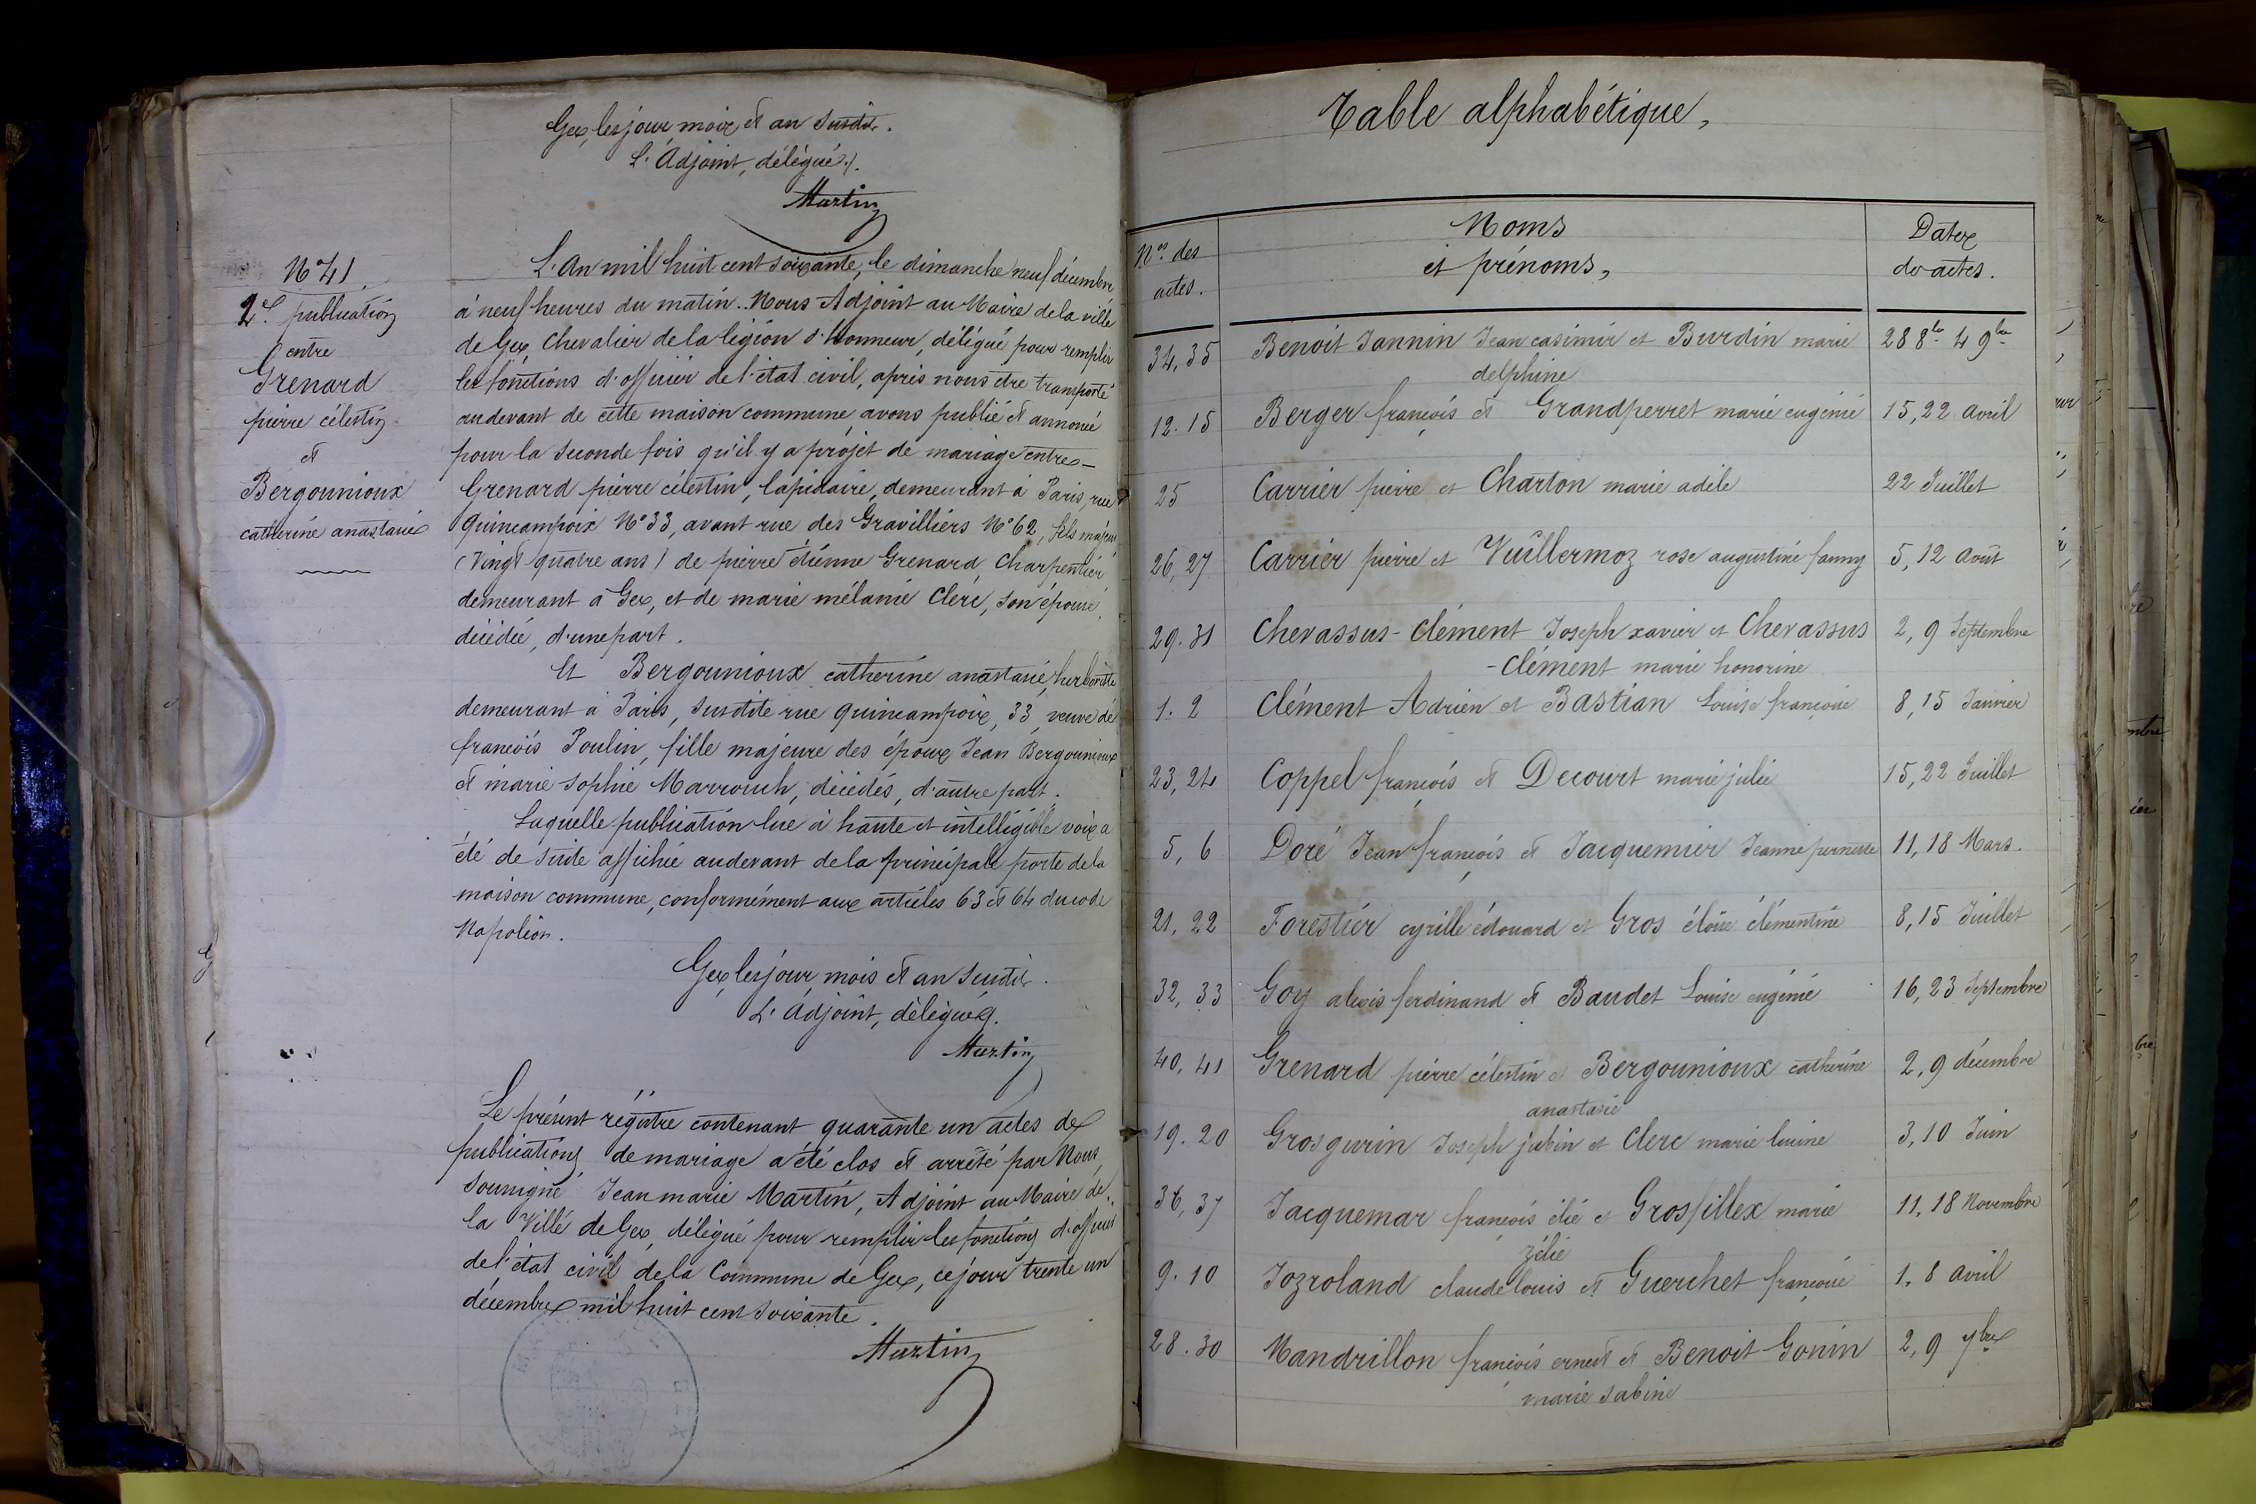 Gex, les jour, mois et an susdits.
L'Adjoint, délégué.
Martin
N° 41.
2e publication
entre
Grenard
pierre célestin
et
Bergounioux
catherine anastasie
L'An mil huit cent soixante, le dimanche neuf décembre
à neuf heures du matin. Nous Adjoint au Maire de la ville
de Gex, Chevalier de la légion d'honneur, délégué pour remplir
les fonctions d'officier de l'état civil, après nous être transporté
au devant de cette maison commune, avons publié et annoncé
pour la seconde fois qu'il y a projet de mariage entre
Grenard pierre célestin, lapidaire, demeurant à Paris, rue
Quincampoix N° 33, avant rue des Gravilliers N° 62, fils majeur
(vingt quatre ans) de pierre étienne Grenard, Charpentier,
demeurant à Gex, et de marie mélanie Clerc, son épouse,
décédée, d'une part.
Et Bergounioux catherine anastasie, herboriste
demeurant à Paris, susdite rue Quincampoix, 33, veuve de
françois Poulin, fille majeure des époux Jean Bergounioux
et marie sophie, décédés, d'autre part.
Laquelle publication lue à haute et intelligible voix a
été de suite affichée au devant de la principale porte de la
maison commune, conformément aux articles 63 et 64 du code
Napoléon.
Gex, les jour, mois et an susdits.
L'Adjoint, délégué.
Martin
Le présent régistre contenant quarante un actes de
publications de mariage a été clos et arrêté par Nous,
soussigné Jean marie Martin, Adjoint au Maire de
la Ville de Gex, délégué pour remplir les fonctions d'officier
de l'état civil de la Commune de Gex, ce jour trente un
décembre mil huit cent soixante.
Martin
Table alphabétique,
Nos des actes.
Noms et prénoms,
Dates des actes.
34, 35 Benoit Jannin Jean casimir et Burdin marie 28 8bre 4 9bre
delphine
12. 15 Berger françois et Grandperret marie eugénie 15, 22 avril
25 Carrier pierre et Charton marie adèle 22 Juillet
26, 27 Carrier pierre et Vuillermoz rose augustine fanny 5, 12 août
29. 31 Chevassus-Clément Joseph xavier et Chevassus 2, 9 Septembre
-Clément marie honorine
1. 2 Clément Adrien et Bastian Louise françoise 8, 15 Janvier
23, 24 Coppel françois et Decourt marie julie 15, 22 Juillet
5, 6 Doré Jean françois et Jacquemier Jeanne pernette 11, 18 Mars.
21, 22 Forestier cyrille édouard et Gros éloïse clémentine 8, 15 Juillet
32, 33 Goy alexis ferdinand et Baudet Louise eugénie 16, 23 Septembre
40, 41 Grenard pierre célestin et Bergounioux catherine 2, 9 décembre
anastasie
19. 20 Grosgurin Joseph jubin et Clerc marie 3, 10 Juin
36, 37 Jacquemar françois élie et Grosfillex marie 11, 18 Novembre
zélie
9. 10 Jozroland claude louis et Guerchet françoise 1, 8 avril
28. 30 Mandrillon françois ernest et Benoit Gonin 2, 9 7bre
marie sabine